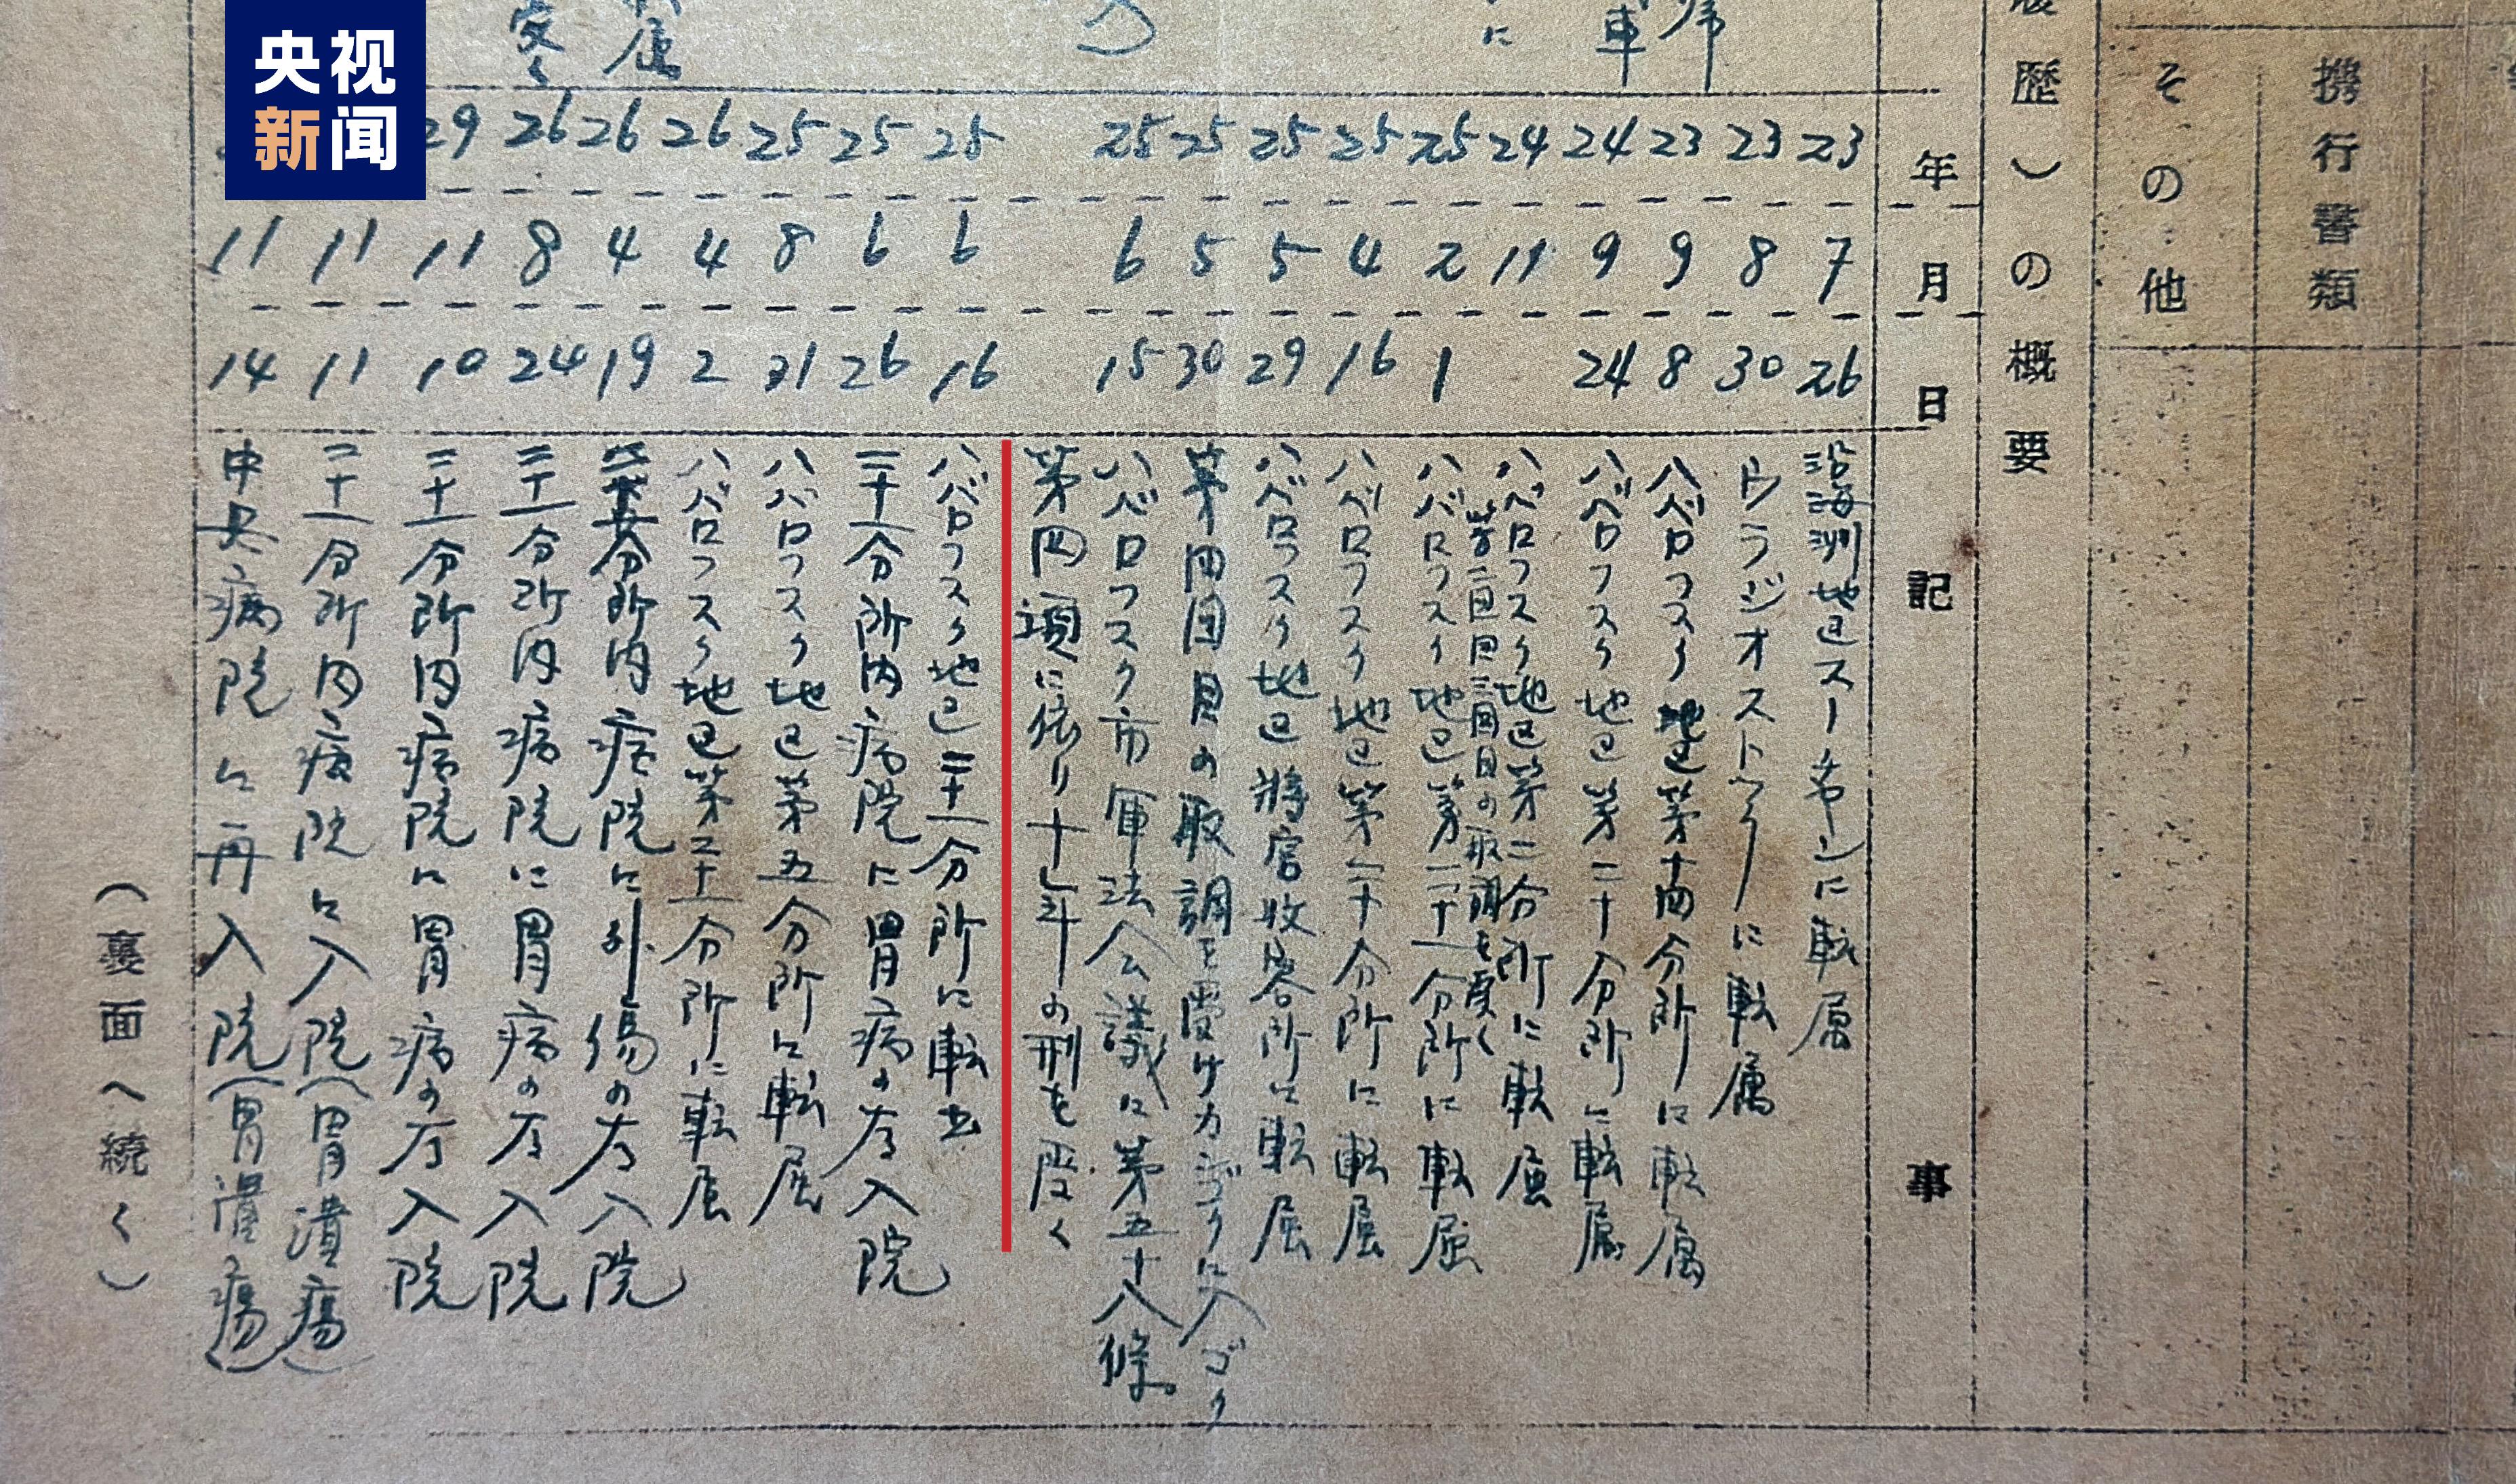 央视
新闻
携行書類
その他
歴)の概要
年月日 記事
23 7 26 沿海洲地区スーチヤンに転属
23 8 30 ウラジオストックに転属
23 9 8 ハバロフスク地区第十四分所に転属
24 9 24 ハバロフスク地区第二十分所に転属
24 11 ハバロフスク地区第二分所に転属
第二回三回目の取調を受く
25 2 1 ハバロフスク地区第二十一分所に転属
25 4 16 ハバロフスク地区第二十分所に転属
25 5 29 ハバロフスク地区将官收容所に転属
25 5 30 第四回目の取調を受けカンゴクに入ゴク
25 6 15 ハバロフスク市軍法会議に第五十八條
第四項に依り十年の刑を受く
25 6 16 ハバロフスク地区二十一分所に転出
25 6 26 二十一分所内病院に胃病の為入院
25 8 31 ハバロフスク地区第五分所に転属
26 4 2 ハバロフスク地区第二十一分所に転属
26 4 19 分所内病院に外傷の為入院
26 8 24 二十一分所内病院に胃病の為入院
29 11 10 二十一分所内病院に胃病の為入院
11 11 二十一分所内病院に入院(胃潰瘍)
11 14 中央病院に再入院(胃潰瘍)
(裏面へ続く)